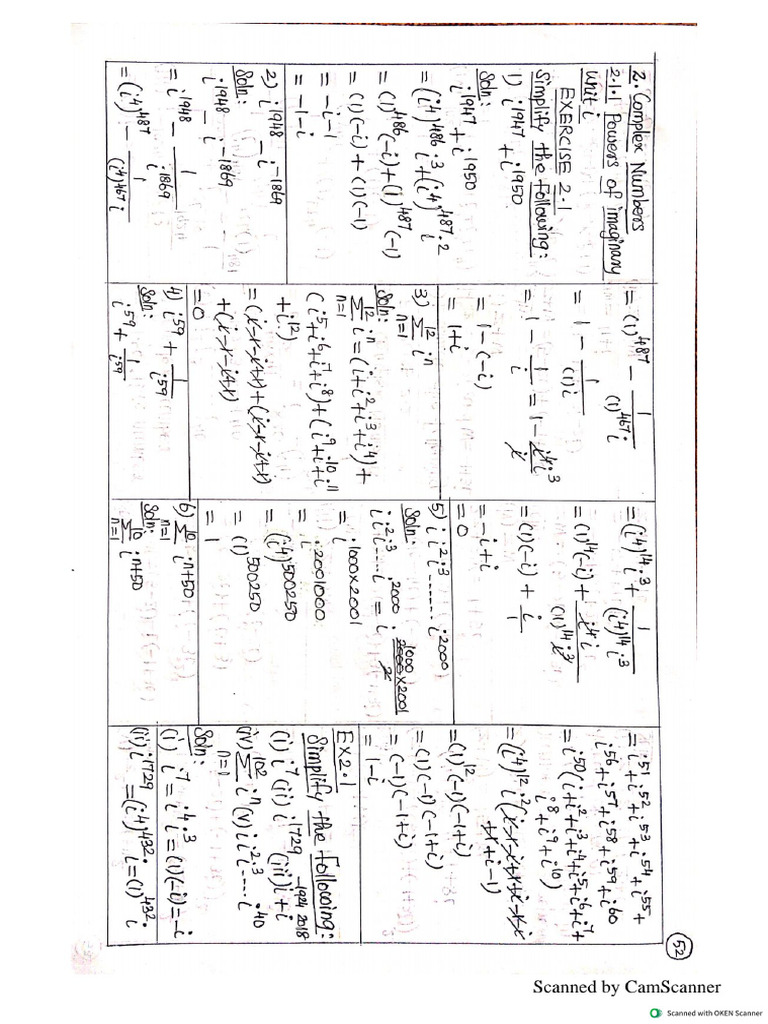 52
2. Complex Numbers
2.1.1 Powers of imaginary
unit i
EXERCISE 2.1
Simplify the following:
1) i^1947 + i^1950
Soln:
i^1947 + i^1950
= (i^4)^486 i^3 + (i^4)^487 i^2
= (1)^486 (-i) + (1)^487 (-1)
= (1)(-i) + (1)(-1)
= -i - 1
= -1 - i
2) i^1948 - i^-1869
Soln:
i^1948 - i^-1869
= i^1948 - 1/i^1869
= (i^4)^487 - 1/(i^4)^467 i
= (1)^487 - 1/(1)^467 i
= 1 - 1/(1)i
= 1 - 1/i = 1 - i^4 i^3/i
= 1 - (-i)
= 1 + i
3) 12 Σ n=1 i^n
Soln:
12 Σ n=1 i^n = (i + i^2 + i^3 + i^4) +
(i^5 + i^6 + i^7 + i^8) + (i^9 + i^10 + i^11
+ i^12)
= (i - 1 - i + 1) + (i - 1 - i + 1)
+ (i - 1 - i + 1)
= 0
4) i^59 + 1/i^59
Soln:
i^59 + 1/i^59
= (i^4)^14 i^3 + 1/(i^4)^14 i^3
= (1)^14 (-i) + i^4 i/(1)^14 i^3
= (1)(-i) + i/1
= -i + i
= 0
5) i i^2 i^3 ...... i^2000
Soln:
i i^2 i^3 .... i^2000 = i^(1000 2000×2001/2)
= i^1000×2001
= i^2001000
= (i^4)^500250
= (1)^500250
= 1
6) 10 Σ n=1 i^n+50
Soln:
10 Σ n=1 i^n+50
= i^51 + i^52 + i^53 + i^54 + i^55 +
i^56 + i^57 + i^58 + i^59 + i^60
= i^50 (i + i^2 + i^3 + i^4 + i^5 + i^6 + i^7 +
i^8 + i^9 + i^10)
= (i^4)^12 i^2 (i - 1 - i + 1 + i - 1 - i
+ 1 + i - 1)
= (1)^12 (-1)(-1+i)
= (1)(-1)(-1+i)
= (-1)(-1+i)
= 1 - i
EX 2.1
Simplify the following:
(i) i^7 (ii) i^1729 (iii) i^-1924 + i^2018
(iv) 102 Σ n=1 i^n (v) i i^2 i^3 .... i^40
Soln:
(i) i^7 = i^4 i^3 = (1)(-i) = -i
(ii) i^1729 = (i^4)^432 i = (1)^432 i
Scanned by CamScanner
Scanned with OKEN Scanner